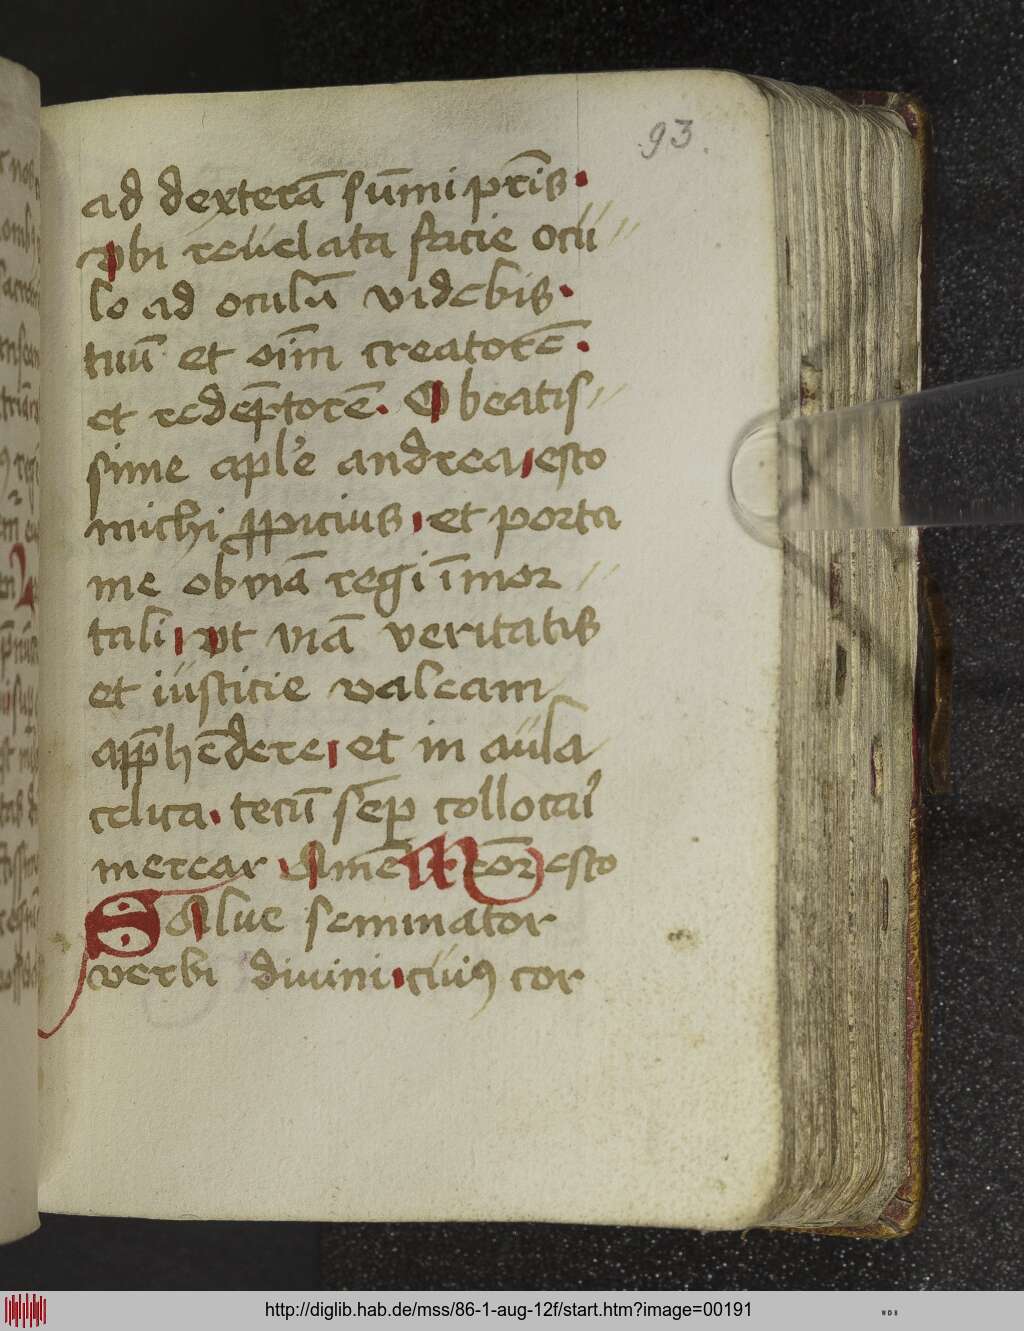 93.
ad dexterā sūmi pr̄is.
vbi reuelata facie ocu
lo ad oculū videbis.
tuū et oīm creatorē.
et redēptorē. O beatis
sime apl'e andrea esto
michi ꝓpicius et porta
me obuiā regi īmor
tali vt viā veritatis
et iusticie valeam
app̄hēdere et in aula
celica. tecū sēꝑ collocai
merear Amē esto
Salue seminator
verbi diuini cuiꝰ cor
http://diglib.hab.de/mss/86-1-aug-12f/start.htm?image=00191